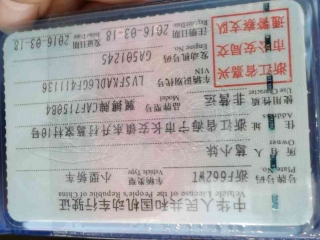 中华人民共和国机动车行驶证
Vehicle License of the People's Republic of China
号牌号码 浙F662WT 车辆类型 小型轿车
Plate No. Vehicle Type
所有人 葛小妹
Owner
住址 浙江省海宁市长安镇东升村葛家村10号
Address
使用性质 非营运 品牌型号 福特牌CAF7150B4
Use Character Model
浙江省嘉兴
市公安局交
通警察支队
车辆识别代号 LVSFKADL6GF411136
VIN
发动机号码 GA501245
Engine No.
注册日期 2016-03-18 发证日期 2016-03-18
Register Date Issue Date